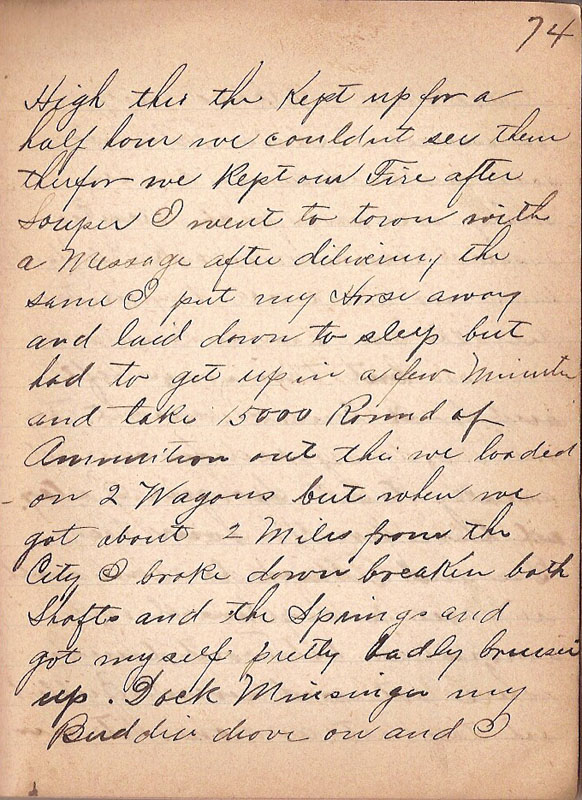 74
High this the Kept up for a
half hour we couldnt see them
therfor we Kept our Fire after
Souper I went to town with
a Message after delivering the
same I put my Horse away
and laid down to sleep but
had to get up in a few Minuten
and take 15000 Round of
Ammunition out this we loaded
on 2 Wagons but when we
got about 2 Miles from the
City I broke down breaken both
Shafts and the Springs and
got my self pretty badly bruised
up. Dock Minsinger my
Buddie drove on and I